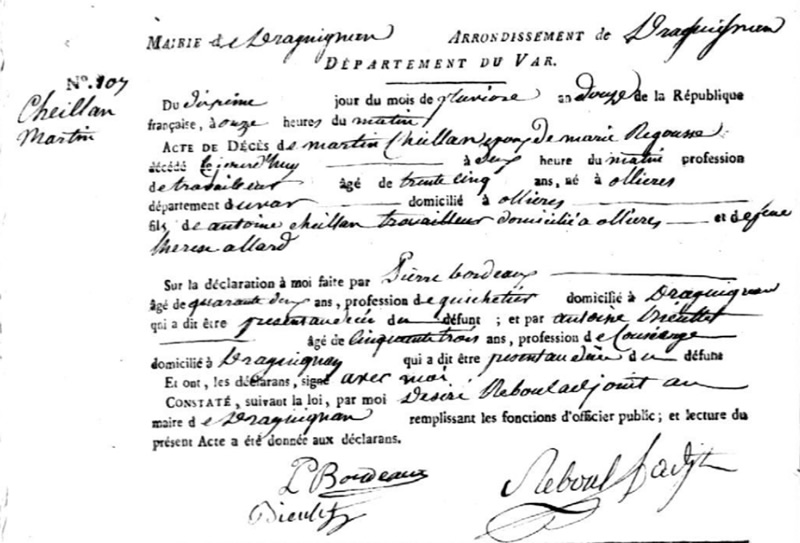 MAIRIE de Draguignan ARRONDISSEMENT de Draguignan
DÉPARTEMENT DU VAR.
N°. 107
Cheillan
Martin
Du dixième jour du mois de pluviose an douze de la République
française, à onze heures du matin
ACTE DE DÉCÈS de martin Cheillan epoux de marie Regousse
décédé ce jourd'huy à deux heure du matin profession
de travailleur âgé de trente cinq ans, né à ollieres
département du var domicilié à ollieres
fils de antoine cheillan travailleur domicilié a ollieres et de feue
therese allard
Sur la déclaration à moi faite par Pierre bordeaux
âgé de quarante deux ans, profession de guichetier domicilié à Draguignan
qui a dit être present au décès du défunt ; et par antoine
âgé de cinquante trois ans, profession de Concierge
domicilié à Draguignan qui a dit être present au décès du défunt
Et ont, les déclarans, signé avec moi
CONSTATÉ, suivant la loi, par moi Desiré Reboul adjoint au
maire de Draguignan remplissant les fonctions d'officier public ; et lecture du
présent Acte a été donnée aux déclarans.
P Bordeaux
Reboul adjt